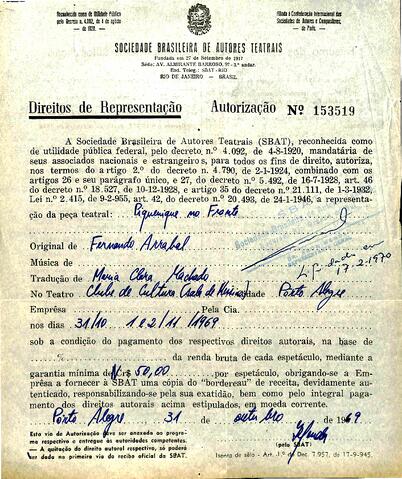 Reconhecida como de Utilidade Pública
pelo Decreto n. 4.092, de 4 de agôsto
de 1920.
Filiada à Confederação Internacional das
Sociedades de Autores e Compositores,
de Paris.
SOCIEDADE BRASILEIRA DE AUTORES TEATRAIS
Fundada em 27 de Setembro de 1917
Séde: AV. ALMIRANTE BARROSO, 97-3.º andar.
End. Teleg.: SBAT-RIO
RIO DE JANEIRO — BRASIL
Direitos de Representação Autorização Nº 153519
A Sociedade Brasileira de Autores Teatrais (SBAT), reconhecida como
de utilidade pública federal, pelo decreto n.º 4.092, de 4-8-1920, mandatária de
seus associados nacionais e estrangeiros, para todos os fins de direito, autoriza,
nos termos do artigo 2.º do decreto n. 4.790, de 2-1-1924, combinado com os
artigos 26 e seu parágrafo único, e 27, do decreto n.º 5.492, de 16-7-1928, art. 46
do decreto n.º 18.527, de 10-12-1928, e artigo 35 do decreto n.º 21.111, de 1-3-1932,
Lei n.º 2.415, de 9-2-955, art. 42, do decreto n.º 20.493, de 24-1-1946, a representa-
ção da peça teatral: Piquenique no Fronte
Original de Fernando Arrabal
Música de
Liquidado em
17.2.1970
Tradução de Maria Clara Machado
No Teatro Clube de Cultura Cidade Porto Alegre
Emprêsa Pela Cia.
nos dias 31/10 1 e 2/11/1969
sob a condição do pagamento dos respectivos direitos autorais, na base de
% da renda bruta de cada espetáculo, mediante a
garantia mínima de NCr$ 50,00 por espetáculo, obrigando-se a Em-
prêsa a fornecer à SBAT uma cópia do "bordereau" de receita, devidamente
autenticado, responsabilizando-se pela sua exatidão, bem como pelo integral paga-
mento dos direitos autorais acima estipulados, em moeda corrente.
Porto Alegre 31 de outubro de 1969
(pela SBAT)
Esta via de Autorização deve ser anexada ao progra-
ma respectivo e entregue às autoridades competentes.
— A quitação do direito autoral respectivo, só poderá
ser dada na primeira via do recibo oficial da SBAT.
Isenta de sêlo - Art. 1.º do Dec. 7.957, de 17-9-945.